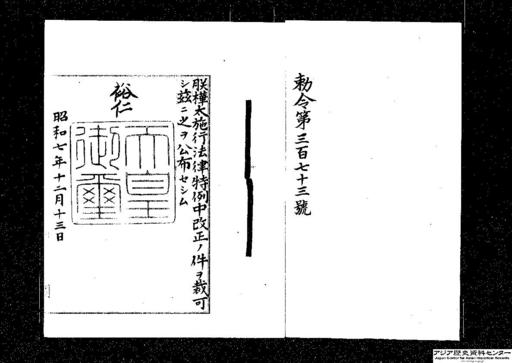 勅令第三百七十三號
朕樺太施行法律特例中改正ノ件ヲ裁可
シ茲ニ之ヲ公布セシム
裕仁
天皇
御璽
昭和七年十二月十三日
アジア歴史資料センター
Japan Center for Asian Historical Records